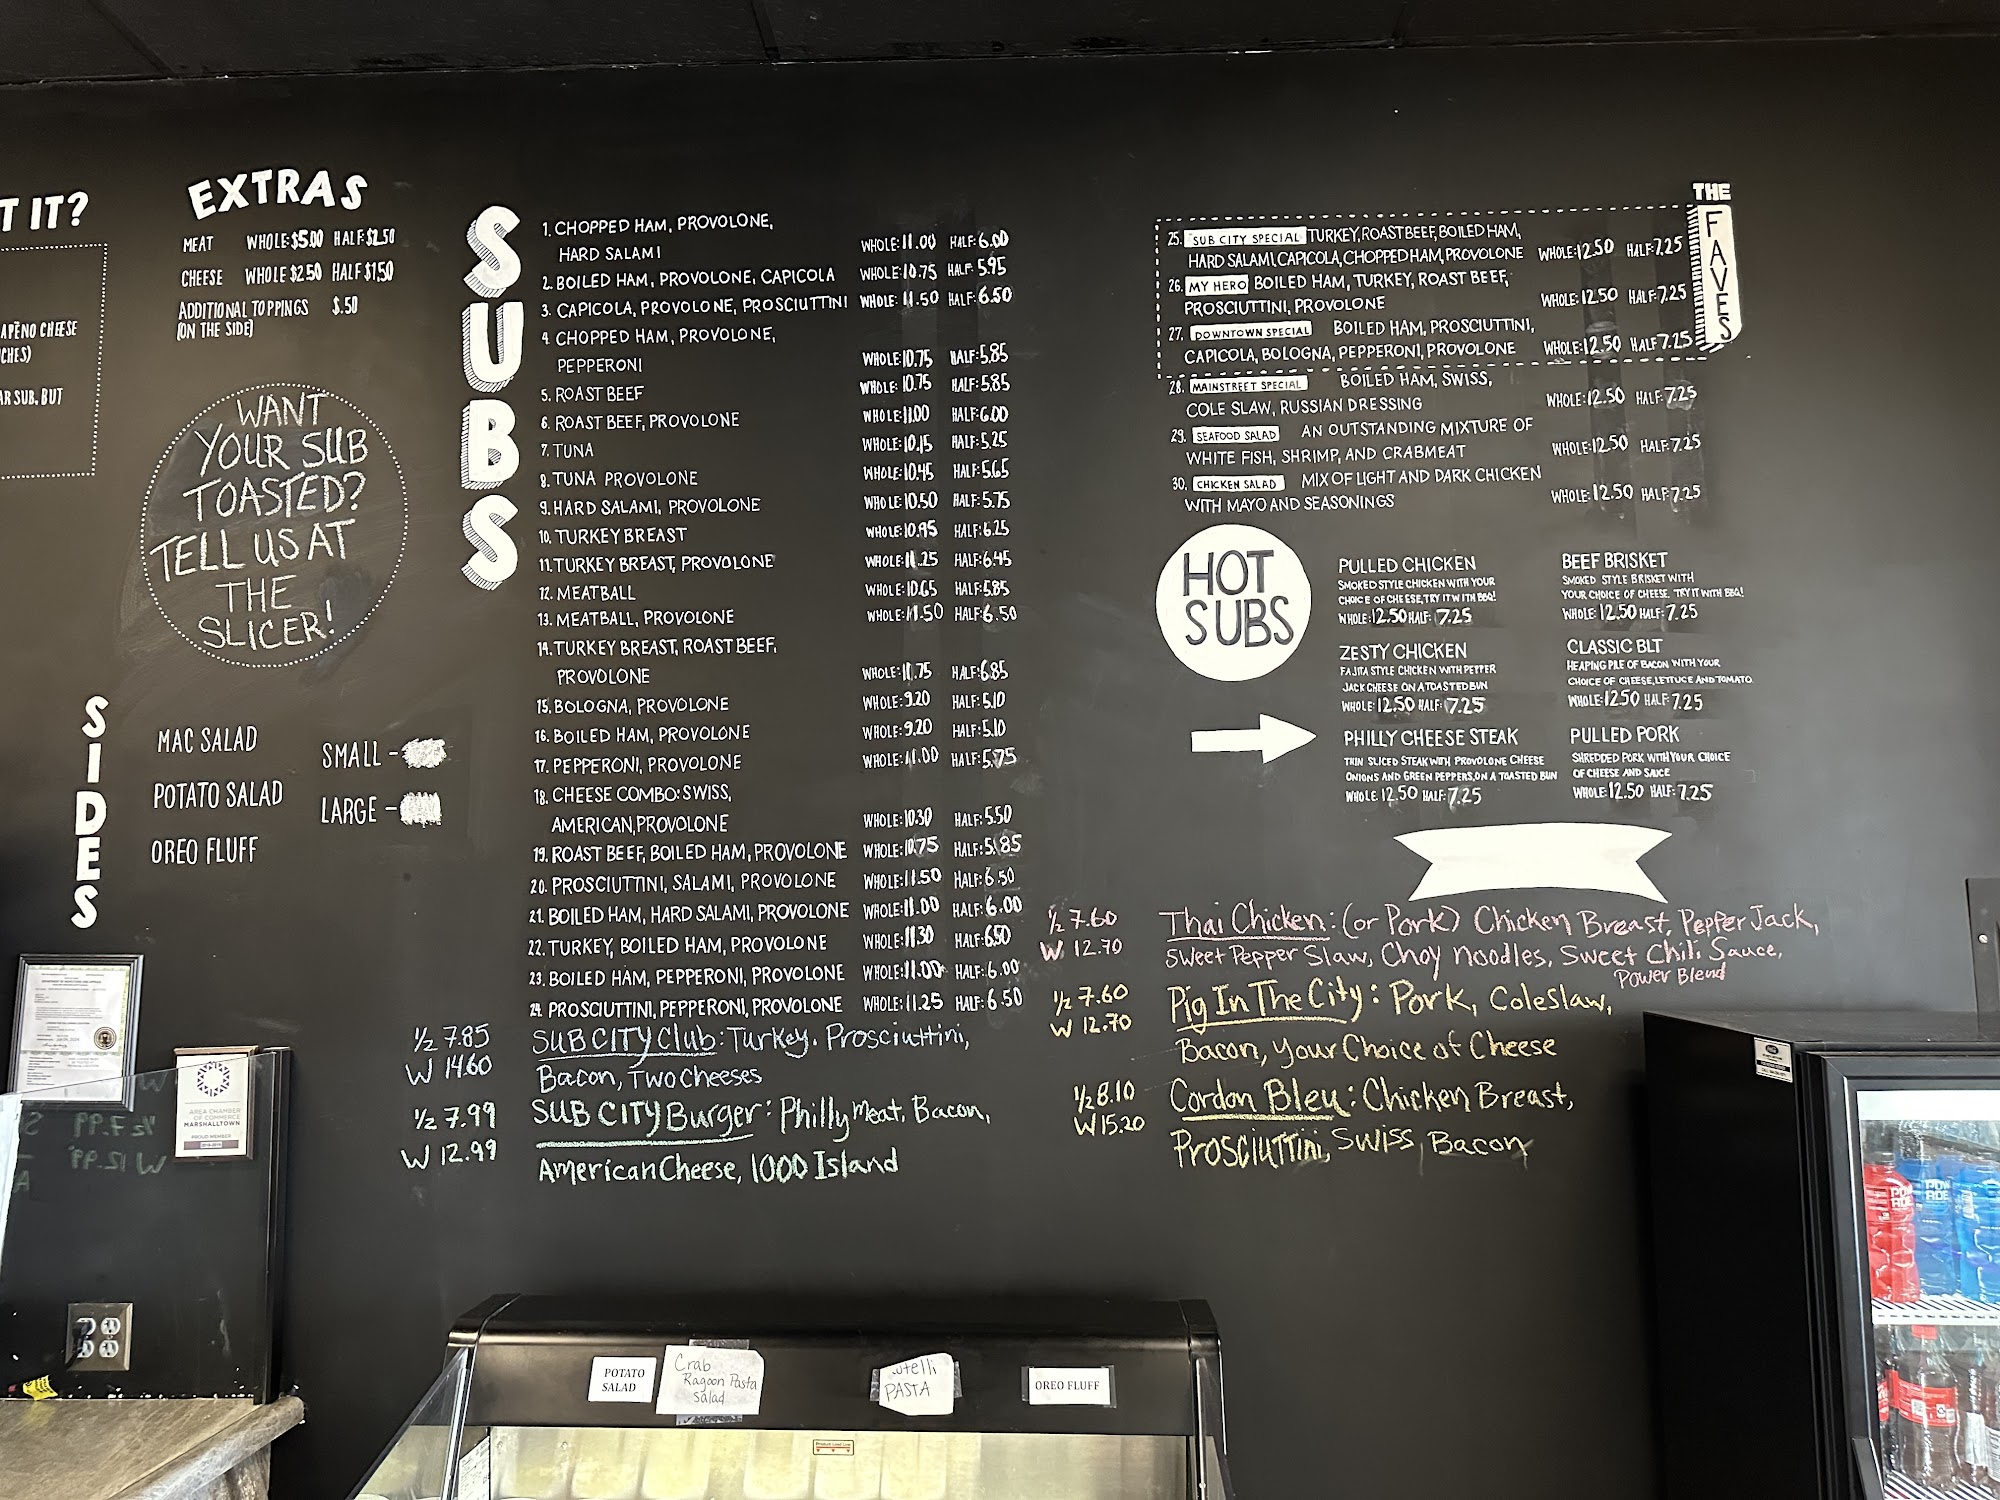 T IT?
APEÑO CHEESE
CHES)
AR SUB, BUT
EXTRAS
MEAT WHOLE:$5.00 HALF:$2.50
CHEESE WHOLE $2.50 HALF $1.50
ADDITIONAL TOPPINGS $.50
(ON THE SIDE)
WANT
YOUR SUB
TOASTED?
TELL US AT
THE
SLICER!
SIDES
MAC SALAD
POTATO SALAD
OREO FLUFF
SMALL -
LARGE -
SUBS
1. CHOPPED HAM, PROVOLONE,
HARD SALAMI WHOLE: 11.00 HALF: 6.00
2. BOILED HAM, PROVOLONE, CAPICOLA WHOLE: 10.75 HALF: 5.95
3. CAPICOLA, PROVOLONE, PROSCIUTTINI WHOLE: 11.50 HALF: 6.50
4. CHOPPED HAM, PROVOLONE,
PEPPERONI WHOLE: 10.75 HALF: 5.85
5. ROAST BEEF WHOLE: 10.75 HALF: 5.85
6. ROAST BEEF, PROVOLONE WHOLE: 11.00 HALF: 6.00
7. TUNA WHOLE: 10.15 HALF: 5.25
8. TUNA PROVOLONE WHOLE: 10.45 HALF: 5.65
9. HARD SALAMI, PROVOLONE WHOLE: 10.50 HALF: 5.75
10. TURKEY BREAST WHOLE: 10.95 HALF: 6.25
11. TURKEY BREAST, PROVOLONE WHOLE: 11.25 HALF: 6.45
12. MEATBALL WHOLE: 10.65 HALF: 5.85
13. MEATBALL, PROVOLONE WHOLE: 11.50 HALF: 6.50
14. TURKEY BREAST, ROAST BEEF,
PROVOLONE WHOLE: 11.75 HALF: 6.85
15. BOLOGNA, PROVOLONE WHOLE: 9.20 HALF: 5.10
16. BOILED HAM, PROVOLONE WHOLE: 9.20 HALF: 5.10
17. PEPPERONI, PROVOLONE WHOLE: 11.00 HALF: 5.75
18. CHEESE COMBO: SWISS,
AMERICAN, PROVOLONE WHOLE: 10.30 HALF: 5.50
19. ROAST BEEF, BOILED HAM, PROVOLONE WHOLE: 10.75 HALF: 5.85
20. PROSCIUTTINI, SALAMI, PROVOLONE WHOLE: 11.50 HALF: 6.50
21. BOILED HAM, HARD SALAMI, PROVOLONE WHOLE: 11.00 HALF: 6.00
22. TURKEY, BOILED HAM, PROVOLONE WHOLE: 11.30 HALF: 6.50
23. BOILED HAM, PEPPERONI, PROVOLONE WHOLE: 11.00 HALF: 6.00
24. PROSCIUTTINI, PEPPERONI, PROVOLONE WHOLE: 11.25 HALF: 6.50
1/2 7.85 SUB CITY Club: Turkey, Prosciuttini,
W 14.60 Bacon, Two Cheeses
1/2 7.99 SUB CITY Burger: Philly Meat, Bacon,
W 12.99 American Cheese, 1000 Island
THE FAVES
25. SUB CITY SPECIAL TURKEY, ROAST BEEF, BOILED HAM,
HARD SALAMI, CAPICOLA, CHOPPED HAM, PROVOLONE WHOLE: 12.50 HALF: 7.25
26. MY HERO BOILED HAM, TURKEY, ROAST BEEF,
PROSCIUTTINI, PROVOLONE WHOLE: 12.50 HALF: 7.25
27. DOWNTOWN SPECIAL BOILED HAM, PROSCIUTTINI,
CAPICOLA, BOLOGNA, PEPPERONI, PROVOLONE WHOLE: 12.50 HALF 7.25
28. MAINSTREET SPECIAL BOILED HAM, SWISS,
COLE SLAW, RUSSIAN DRESSING WHOLE: 12.50 HALF: 7.25
29. SEAFOOD SALAD AN OUTSTANDING MIXTURE OF
WHITE FISH, SHRIMP, AND CRABMEAT WHOLE: 12.50 HALF: 7.25
30. CHICKEN SALAD MIX OF LIGHT AND DARK CHICKEN
WITH MAYO AND SEASONINGS WHOLE: 12.50 HALF: 7.25
HOT
SUBS
PULLED CHICKEN
SMOKED STYLE CHICKEN WITH YOUR
CHOICE OF CHEESE, TRY IT WITH BBQ!
WHOLE: 12.50 HALF: 7.25
BEEF BRISKET
SMOKED STYLE BRISKET WITH
YOUR CHOICE OF CHEESE. TRY IT WITH BBQ!
WHOLE: 12.50 HALF: 7.25
ZESTY CHICKEN
FAJITA STYLE CHICKEN WITH PEPPER
JACK CHEESE ON A TOASTED BUN
WHOLE: 12.50 HALF: 7.25
CLASSIC BLT
HEAPING PILE OF BACON WITH YOUR
CHOICE OF CHEESE, LETTUCE AND TOMATO.
WHOLE: 12.50 HALF: 7.25
PHILLY CHEESE STEAK
THIN SLICED STEAK WITH PROVOLONE CHEESE
ONIONS AND GREEN PEPPERS, ON A TOASTED BUN
WHOLE: 12.50 HALF: 7.25
PULLED PORK
SHREDDED PORK WITH YOUR CHOICE
OF CHEESE AND SAUCE
WHOLE: 12.50 HALF: 7.25
1/2 7.60 Thai Chicken: (or Pork) Chicken Breast, Pepper Jack,
W 12.70 Sweet Pepper Slaw, Choy Noodles, Sweet Chili Sauce,
Power Blend
1/2 7.60 Pig In The City: Pork, Coleslaw,
W 12.70 Bacon, Your Choice of Cheese
1/2 8.10 Cordon Bleu: Chicken Breast,
W 15.20 Prosciuttini, Swiss, Bacon
AREA CHAMBER
OF COMMERCE
MARSHALLTOWN
PROUD MEMBER
POTATO
SALAD
Crab
Ragoon Pasta
Salad
PASTA
OREO FLUFF